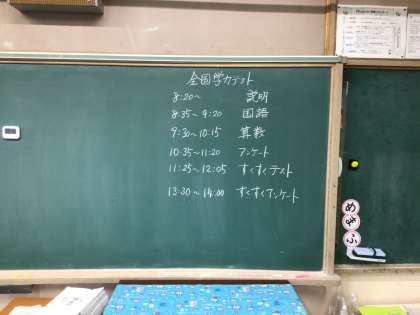 全国学力テスト
8:20～ 説明
8:35～9:20 国語
9:30～10:15 算数
10:35～11:20 アンケート
11:25～12:05 すくすくテスト
13:30～14:00 すくすくアンケート
め
ま
ふ